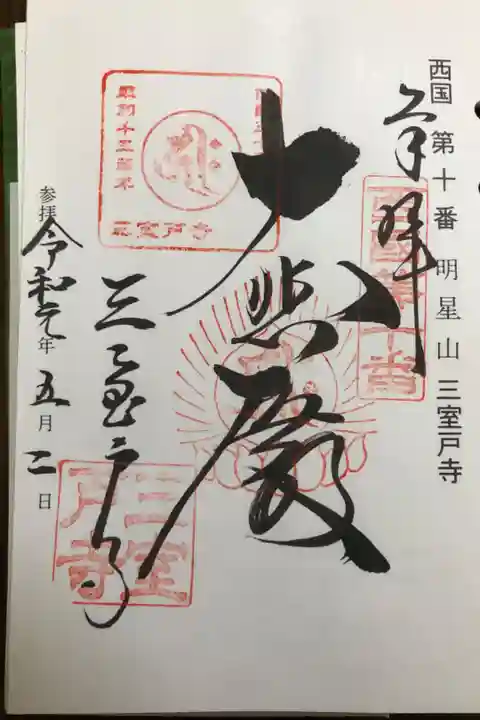 西国 第十番 明星山 三室戸寺
奉拝
西國第十番
大悲殿
三室戸寺
三室戸寺
参拝 令和元年五月二日